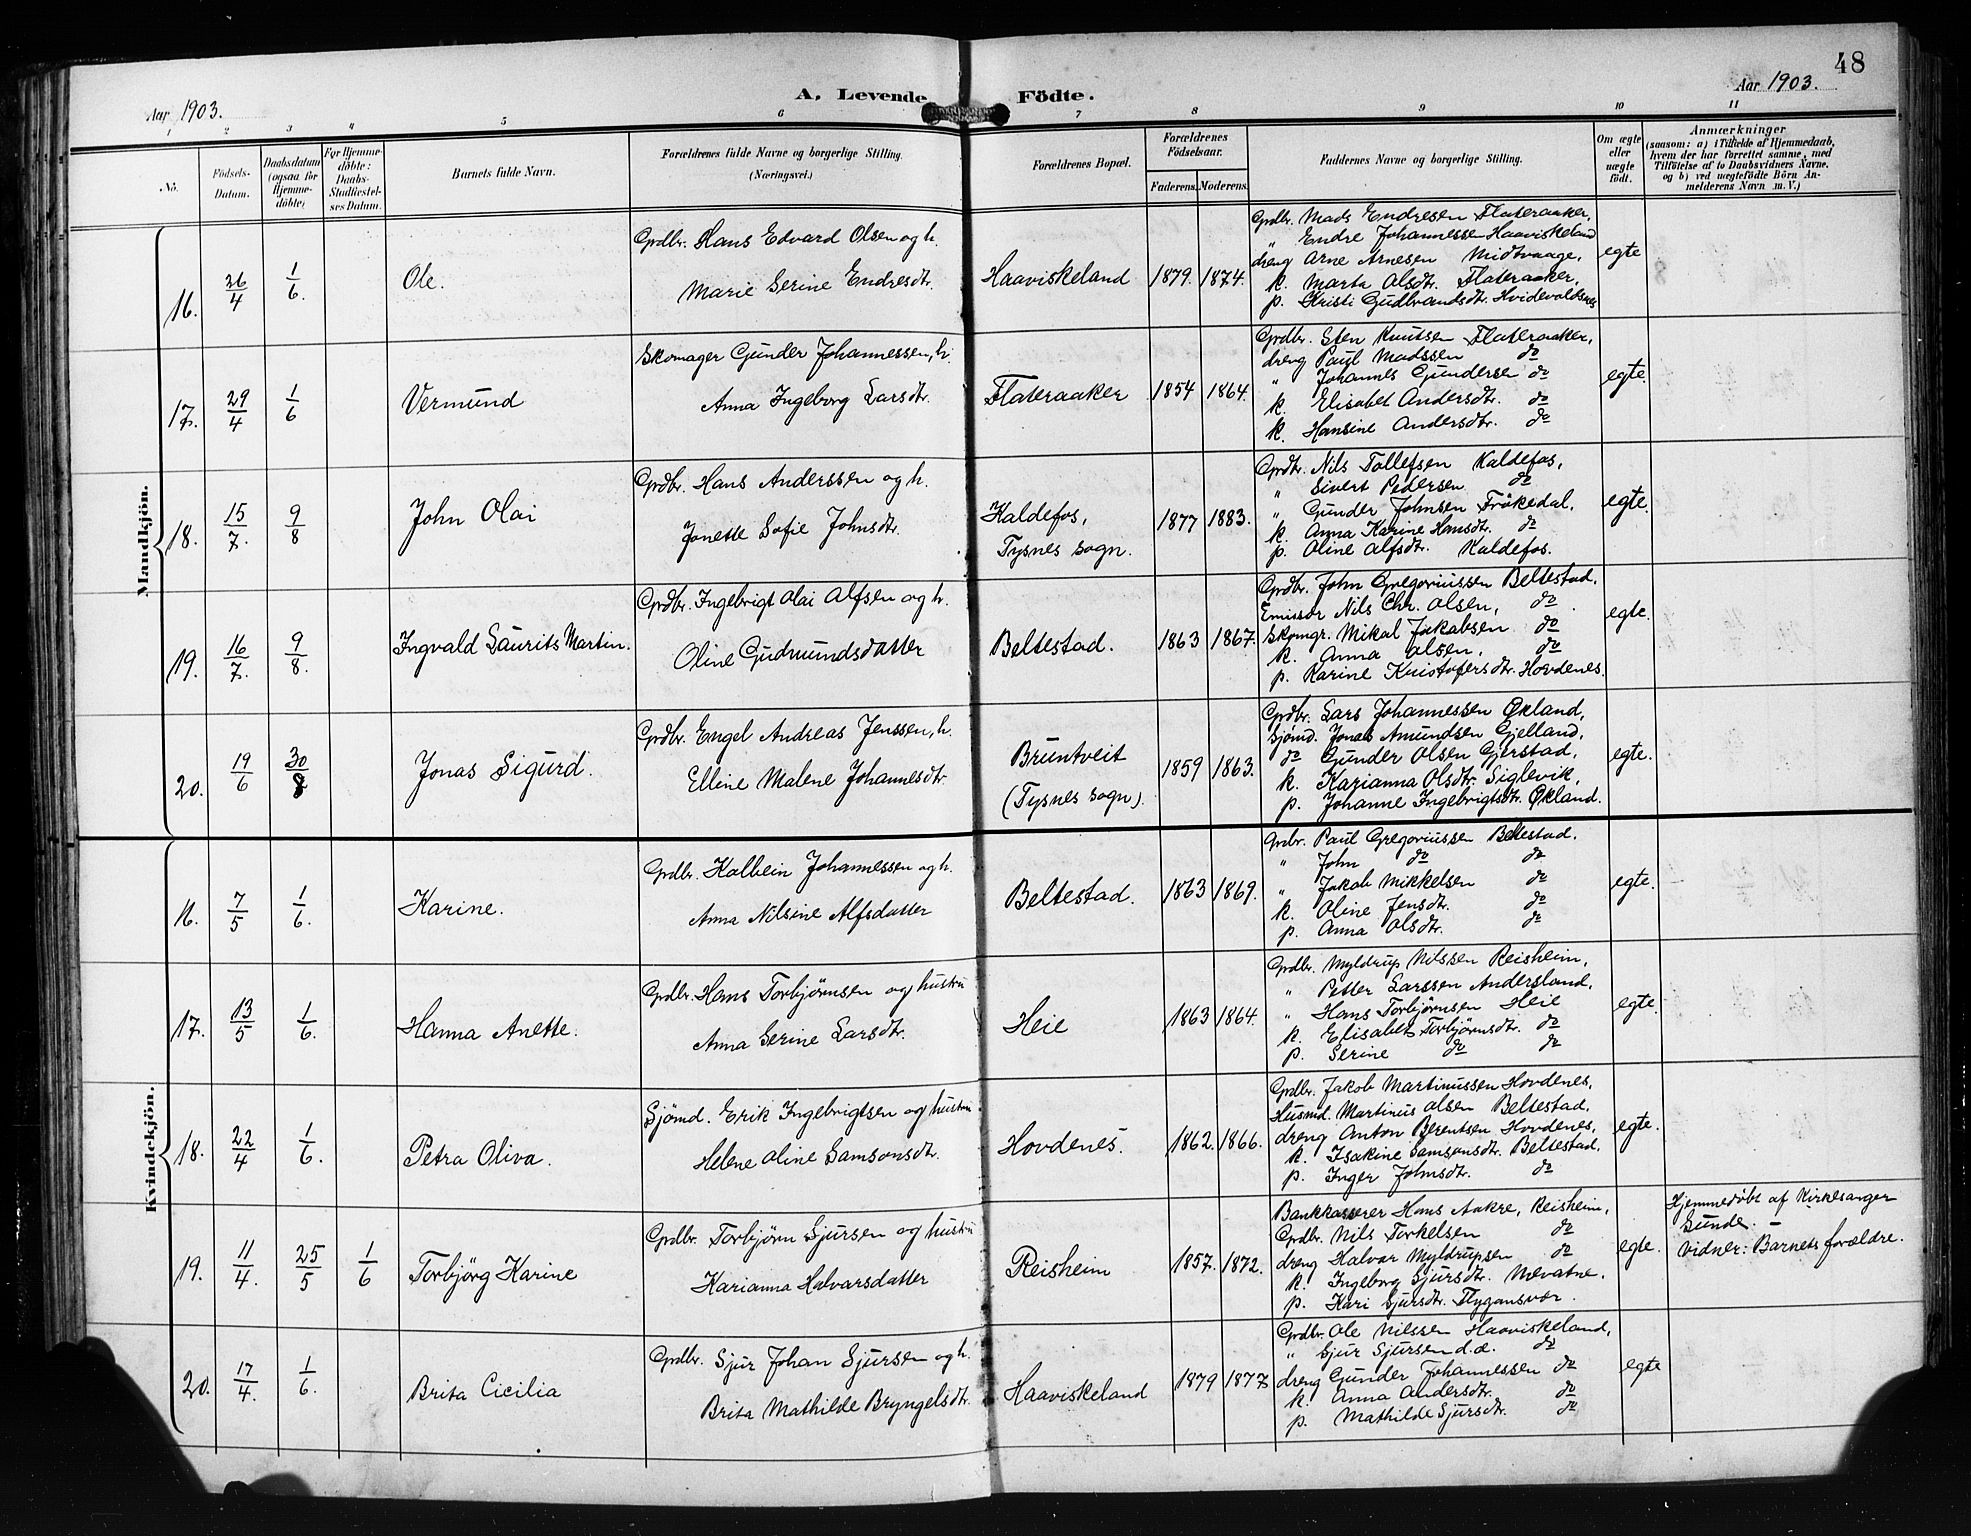 48
Aar 1903.
A. Levende
Födte.
Aar 1903.
1 2 3 4 5 6 7 8 9 10 11
No.
Födsels-
Datum.
Daabsdatum
(ogsaa for
Hjemme-
döbte)
For Hjemme-
döbte:
Daabs-
Stadfæstel-
ses Datum.
Barnets fulde Navn.
Forældrenes fulde Navne og borgerlige Stilling.
(Næringsvei.)
Forældrenes Bopæl.
Forældrenes
Födselsaar.
Faderens. Moderens.
Faddernes Navne og borgerlige Stilling.
Om ægte
eller
uægte
født.
Anmærkninger
(saasom: a) i Tilfælde af Hjemmedaab,
hvem der har forrettet samme, med
Tilföielse af to Daabsvidners Navne.
og b) ved uægtefödte Börn An-
melderens Navn m. V.)
Mandkjön.
16.
26/4
1/6.
Ole.
Grdbr. Hans Edvard Olsen og h.
Marie Serine Endresdtr.
Haaviskeland
1879. 1874.
Grdbr. Mads Endresen Flateraaker,
" Endre Johannessen Haaviskeland
dreng Arne Arnesen Midtvaage,
k. Marta Olsdtr. Flateraaker,
p. Kristi Gudbrandsdtr. Hvidevoldsnes
egte
17.
29/4
1/6
Vermund
Skomager Gunder Johannessen, h.
Anna Ingeborg Larsdtr.
Flateraaker
1854 1864.
Grdbr. Sten Knutsen Flateraaker,
dreng Paul Madssen do
" Johannes Gundersen do
k. Elisabet Andersdtr. do
k. Hansine Andersdtr. do
egte.
18.
15/7.
9/8
John Olai
Grdbr. Hans Anderssen og h.
Jonette Sofie Johnsdtr.
Kaldefos,
Tysnes sogn.
1877 1883.
Grdbr. Nils Tollefsen Kaldefos,
" Sivert Pedersen do
" Gunder Johnsen Frökedal,
k. Anna Karine Hansdtr. do
p. Oline Alfsdtr. Kaldefos.
egte.
19.
16/7.
9/8.
Ingvald Laurits Martin.
Grdbr. Ingebrigt Olai Alfsen og h.
Oline Gudmundsdatter
Beltestad.
1863 1867.
Grdbr. John Gregoriussen Beltestad,
Emissær Nils Chr. Olsen, do
Skomgr. Mikal Jakabsen do
k. Anna Olsen, do
p. Karine Kristofersdtr. Hovdenes.
egte.
20.
19/6
30/8
Jonas Sigurd.
Grdbr. Engel Andreas Jenssen, h.
Elline Malene Johannesdtr.
Bruntveit
(Tysnes sogn).
1859 1863.
Grdbr. Lars Johannessen Økland,
Sjømd. Jonas Amundsen Gjelland,
do Gunder Olsen Gjerstad,
k. Karianna Olsdtr. Siglevik,
p. Johanne Ingebrigtsdtr. Økland.
egte.
Kvindekjön.
16.
7/5
1/6.
Karine.
Grdbr. Kolbein Johannessen og h.
Anna Nilsine Alfsdatter
Beltestad.
1863 1869.
Grdbr. Paul Gregoriussen Beltestad.
" John do do
" Jakob Mikkelsen do
k. Oline Jensdtr. do
p. Anna Olsdtr. do
egte.
17.
13/5
1/6.
Hanna Anette.
Grdbr. Hans Torbjørnsen og hustru
Anna Serine Larsdtr.
Heie
1863 1864.
Grdbr. Myldrup Nilssen Reisheim,
" Petter Larssen Andersland,
" Hans Torbjørnsen Heie
k. Elisabet Torbjørnsdtr. do
p. Serine do do
egte.
18.
22/4
1/6.
Petra Oliva.
Sjömd. Erik Ingebrigtsen og hustru
Helene Oline Samsonsdtr.
Hovdenes.
1862. 1866.
Grdbr. Jakob Martinussen Hovdenes,
Husmd. Martinus Olsen Beltestad,
dreng Anton Berentsen Hovdenes,
k. Isakine Samsonsdtr. Beltestad,
p. Inger Johnsdtr. do
egte.
19.
11/4.
25/5
1/6
Torbjörg Karine
Grdbr. Torbjörn Sjursen og hustru
Karianna Halvarsdatter
Reisheim
1857. 1872.
Bankkasserer Hans Aakre, Reisheim,
Grdbr. Nils Torkelsen do
dreng Halvar Myldrupsen do
k. Ingeborg Sjursdtr. Mevatne,
p. Kari Sjursdtr. Flygansvær.
egte.
Hjemmedøbt af Kirkesanger
Sunde.
Vidner: Barnets forældre.
20.
17/4.
1/6.
Brita Cicilia
Grdbr. Sjur Johan Sjursen og h.
Brita Mathilde Bryngelsdtr.
Haaviskeland
1879 1877
Grdbr. Ole Nilssen Haaviskeland,
" Sjur Sjursen d.æ. do
dreng Gunder Johannessen do
k. Anna Andersdtr. do
p. Mathilde Sjursdtr. do
egte